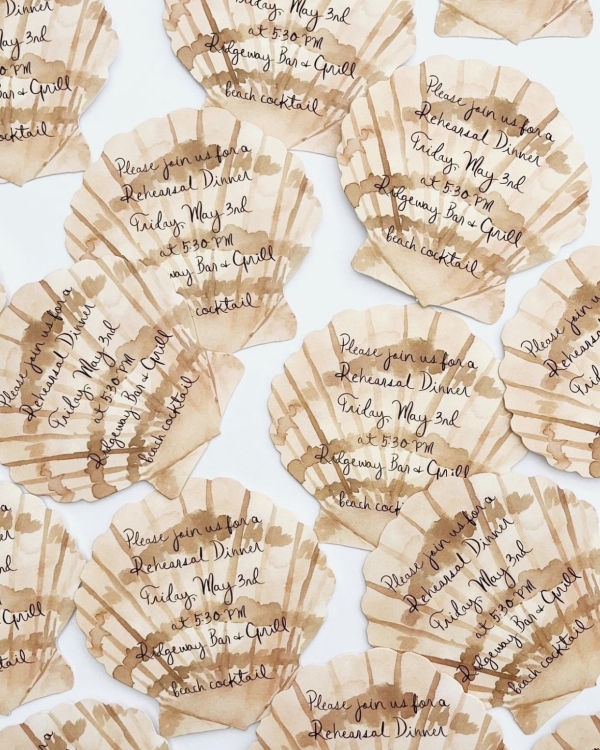 Dinner
May 3rd
5:30 PM
Bar & Grill
cocktail
Friday, May 3rd
at 5:30 PM
Ridgeway Bar & Grill
beach cocktail
Please join us for a
Rehearsal Dinner
Friday, May 3rd
at 5:30 PM
Ridgeway Bar & Grill
beach cocktail
Please join us for a
Rehearsal Dinner
Friday, May 3rd
at 5:30 PM
way Bar & Grill
cocktail
Please join us for a
Rehearsal Dinner
Friday, May 3rd
at 5:30 PM
Ridgeway Bar & Grill
beach cocktail
Please join us for a
Rehearsal Dinner
Friday, May 3rd
at 5:30 PM
Ridgeway Bar & Grill
beach cock
Please join us
Rehearsal
Please join us for a
Rehearsal Dinner
Friday, May 3rd
at 5:30 PM
Ridgeway Bar & Grill
beach cocktail
Please join us for a
Rehearsal Dinner
Friday, May 3rd
at 5:30 PM
Ridgeway Bar & Grill
beach cocktail
Grill
tail
Please join us for a
Rehearsal Dinner